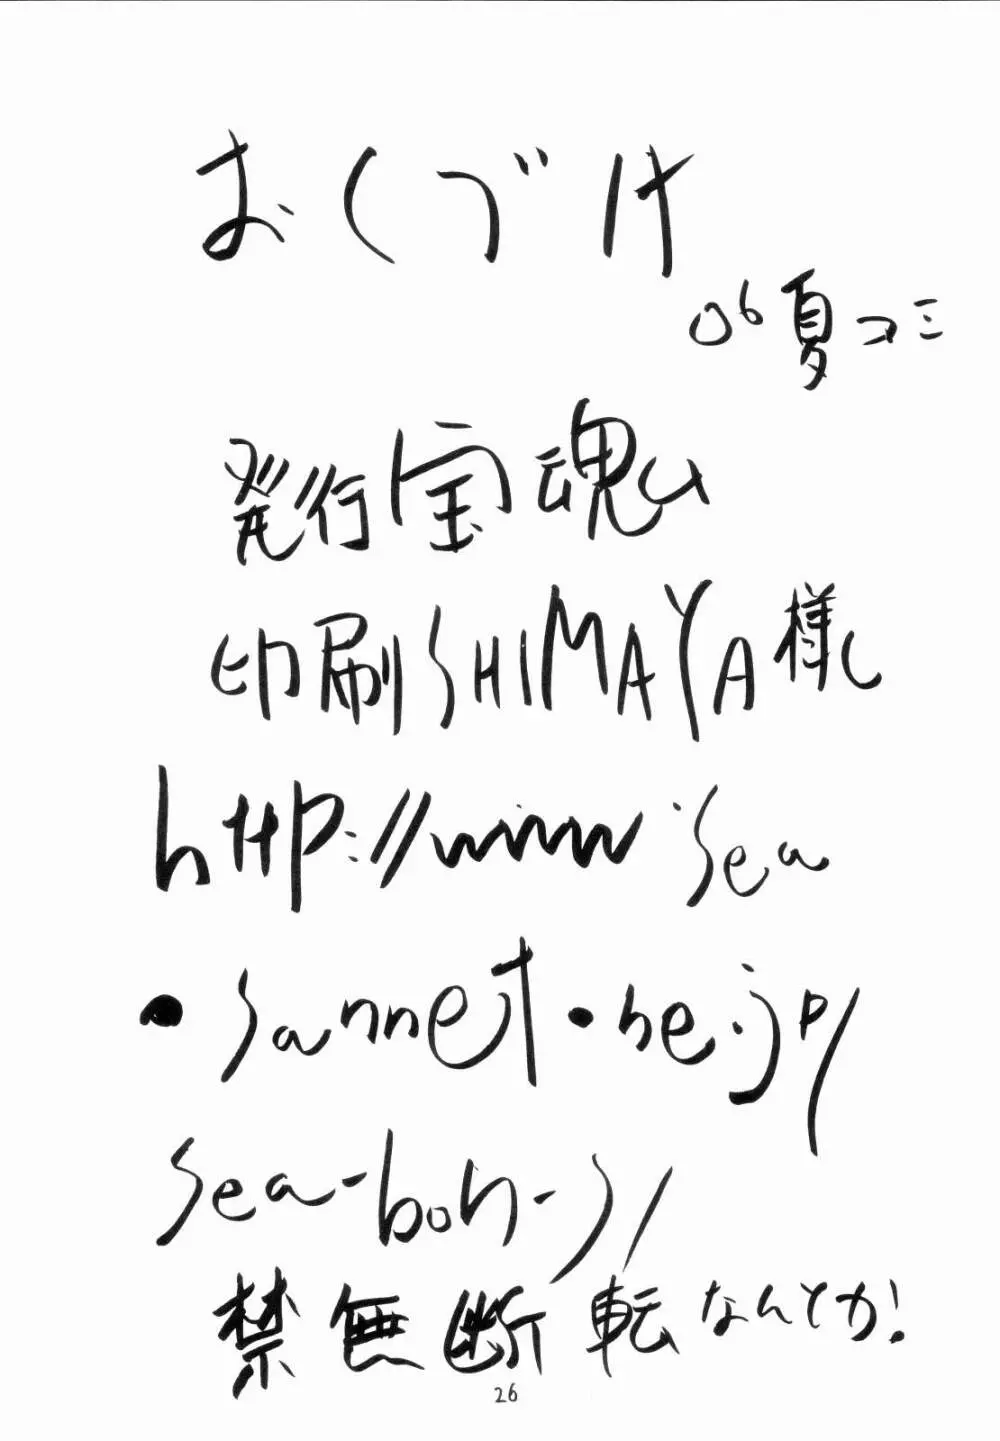 おくづけ
06夏コミ
発行宝魂
印刷SHIMAYA様
http://www.sea
・sannet・ne.jp/
sea-bon-s/
禁無断転なんとか!
26